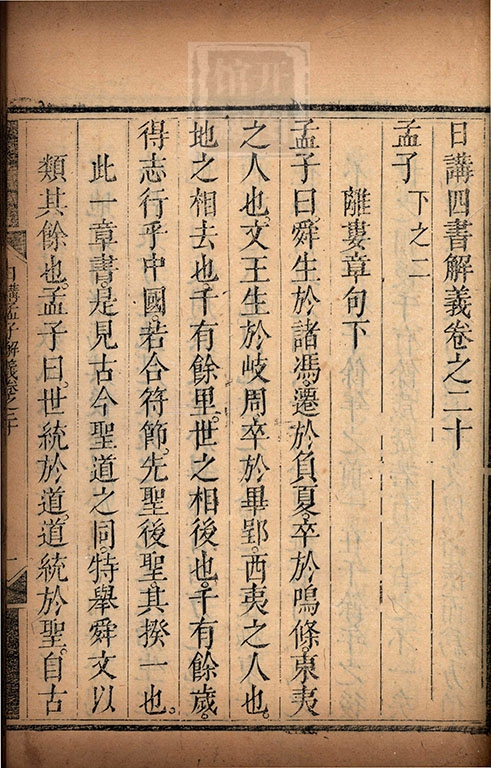 日講四書解義卷之二十
孟子 下之二
離婁章句下
孟子曰。舜生於諸馮。遷於負夏。卒於鳴條。東夷
之人也。文王生於岐周。卒於畢郢。西夷之人也。
地之相去也。千有餘里。世之相後也。千有餘歲。
得志行乎中國。若合符節。先聖後聖其揆一也。
此一章書。是見古今聖道之同。特舉舜文以
類其餘也。孟子曰。世統於道。道統於聖。自古
日講孟子解義卷二十
一